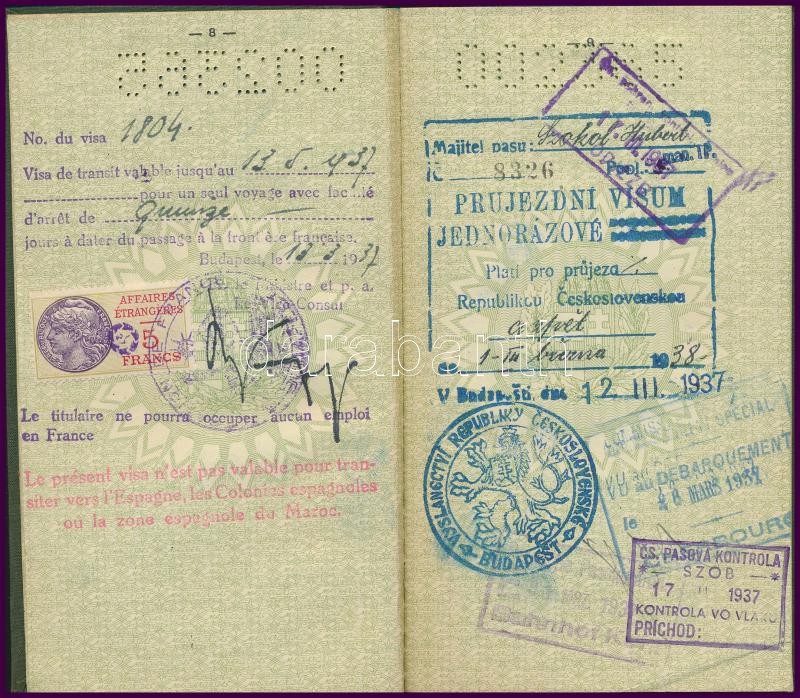 — 8 —
002365
No. du visa 1804.
Visa de transit valable jusqu'au 13.5.1937
pour un seul voyage avec
d'arrêt de
jours à dater du passage à la frontière française.
Budapest, le 13.3.1937
le Ministre et p. a.
Le Vice-Consul
AFFAIRES
ÉTRANGÈRES
5
FRANCS
Le titulaire ne pourra occuper aucun emploi
en France
Le présent visa n'est pas valable pour tran-
siter vers l'Espagne, les Colonies espagnoles
ou la zone espagnole du Maroc.
— 9 —
002365
Majitel pasu: Szokol Hubert
č 8326 Popl.
PRUJEZDNÍ VISUM
JEDNORÁZOVÉ
Platí pro průjezd
Republikou Československou
a zpět
1-ho března 1938.
V Budapešti, dne 12 III. 1937
VYSLANECTVÍ REPUBLIKY ČESKOSLOVENSKÉ
BUDAPEST
SPECIAL
VU au DÉBARQUEMENT
18 MARS 1937
le
ČS. PASOVÁ KONTROLA
SZOB
17 1937
KONTROLA VO VLAKU
PRÍCHOD:
Bahnhof
darabanth